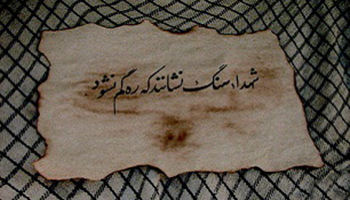 شهدا، سنگ نشانند که ره گم نشود